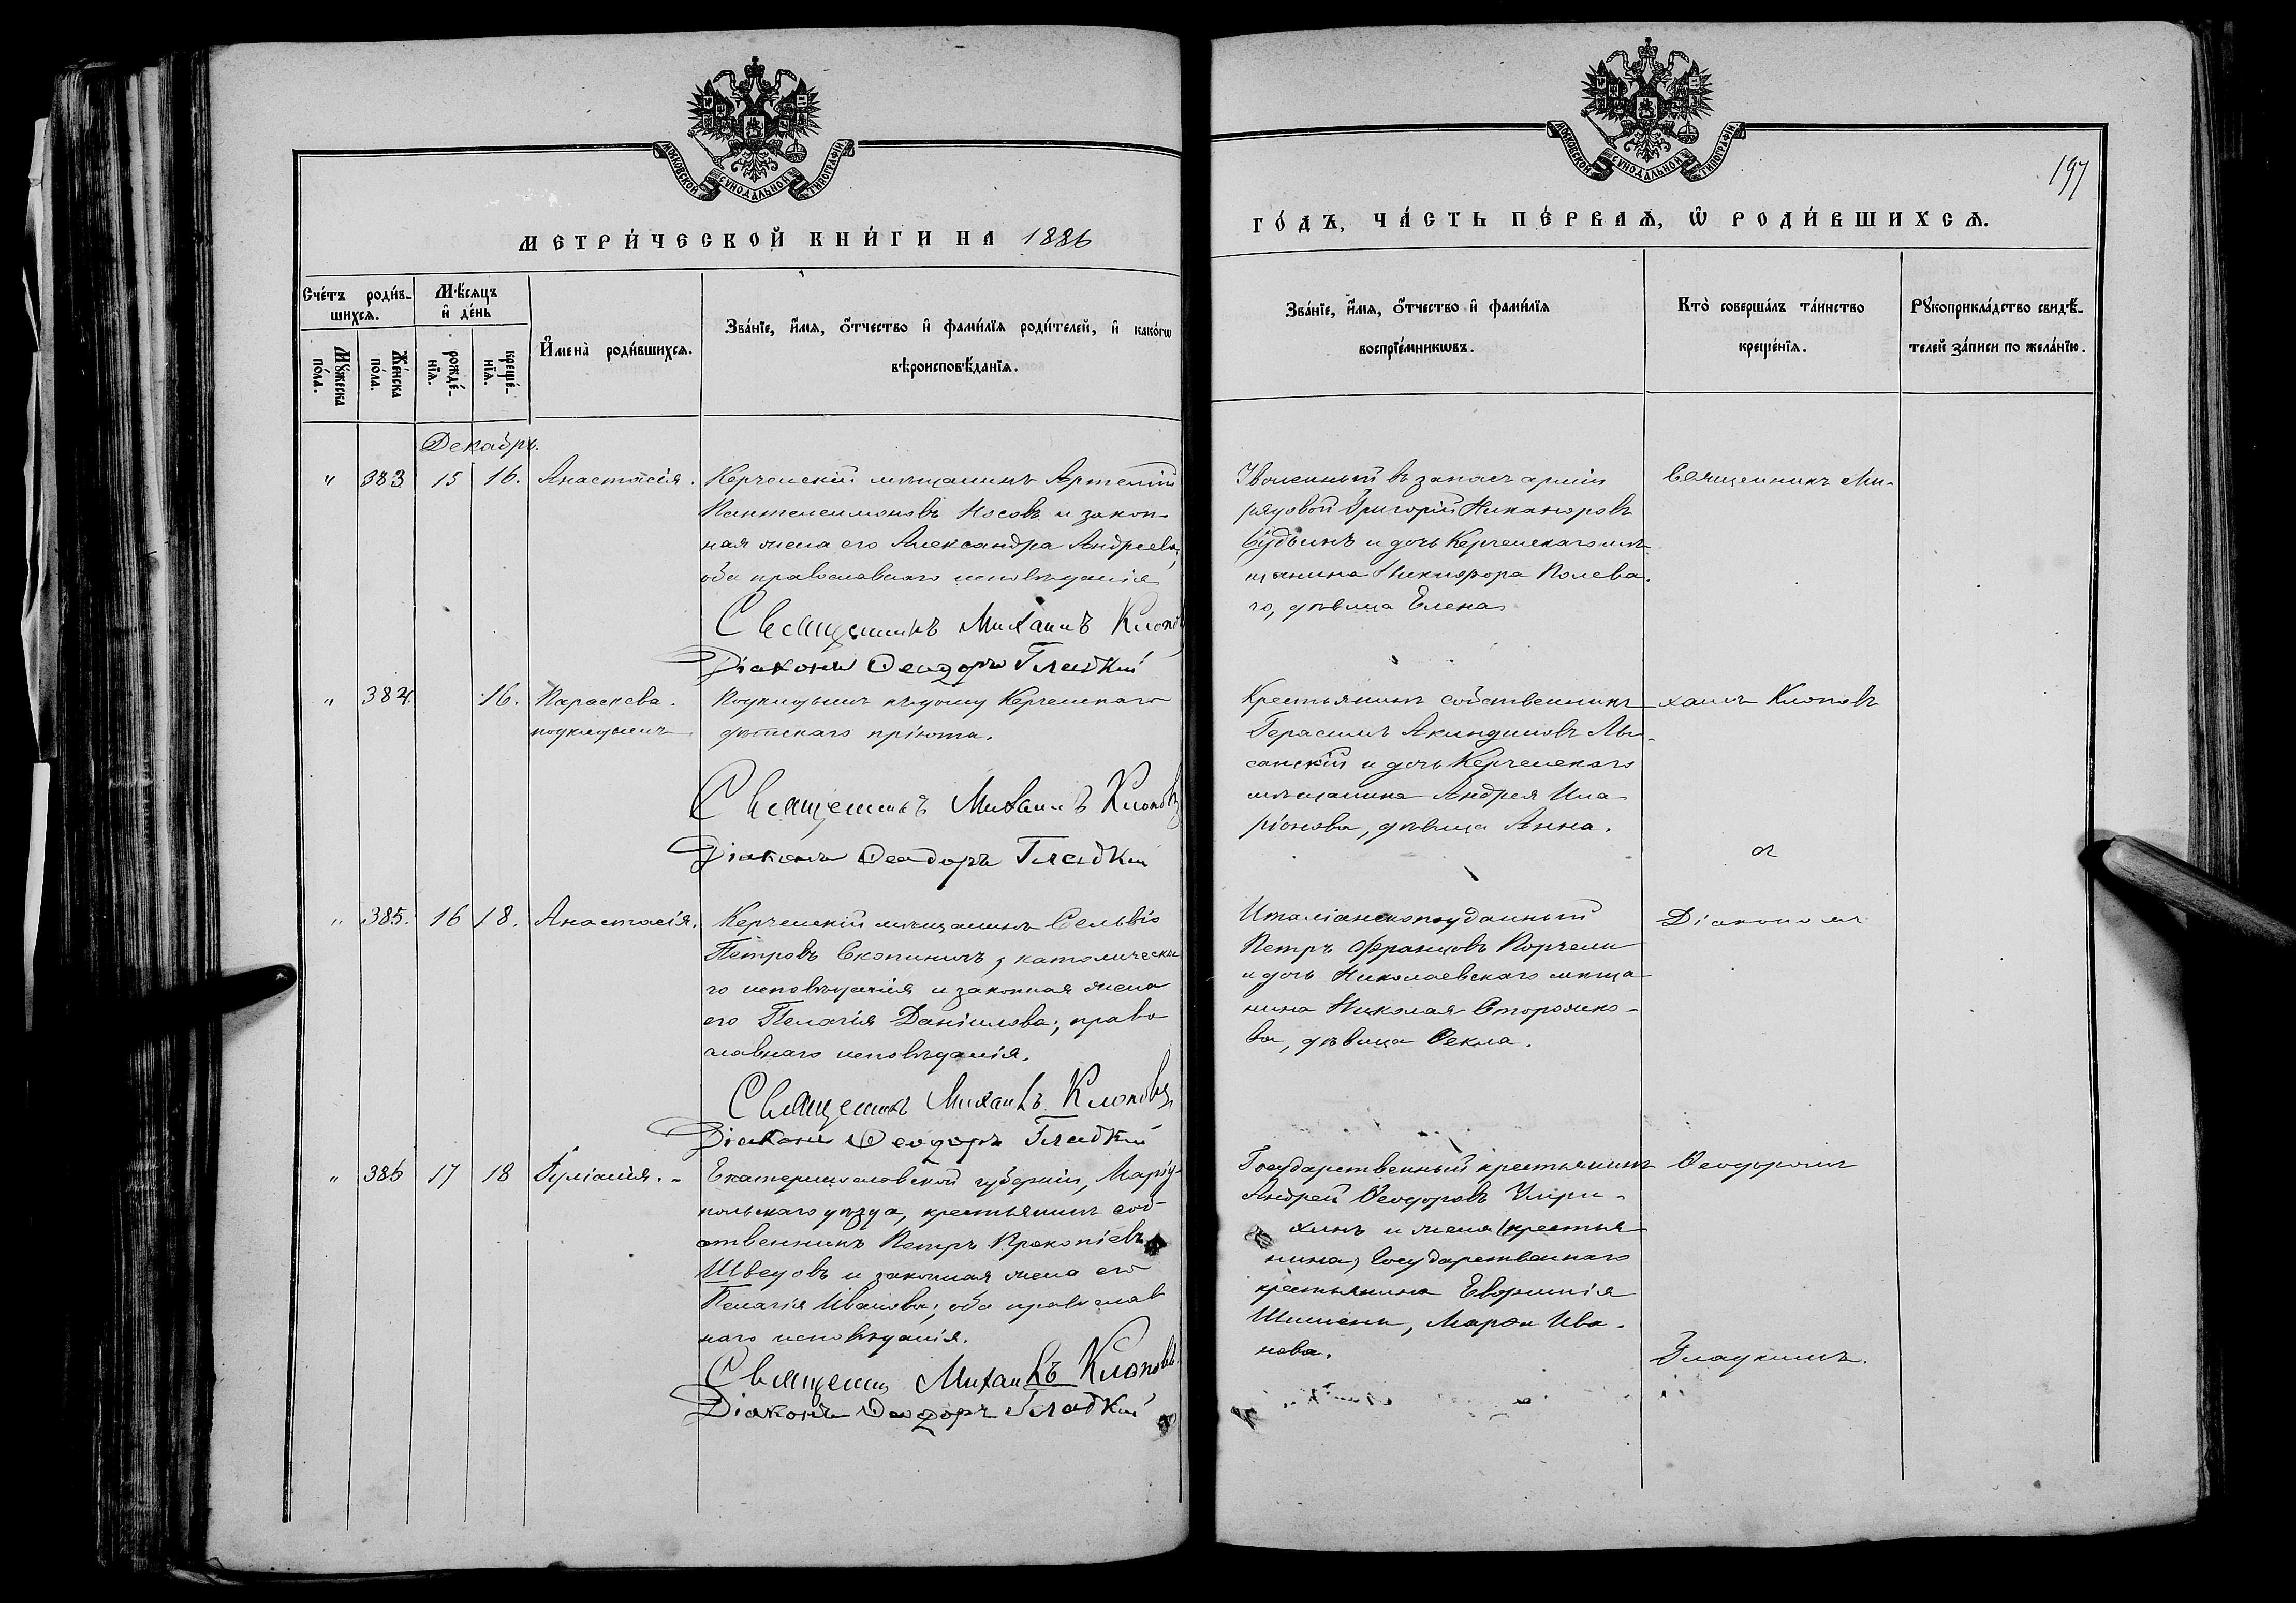 МОСКОВСКОЙ СУНОДАЛЬНОЙ ТИПОГРАФІИ
МЕТРИ́ЧЕСКОЙ КНИ́ГИ НА 1886
Сче́тъ роди́в-
шихсѧ.
Мѣ́сяцъ
и҆ де́нь
Мꙋ́жеска
по́ла.
Же́нска
по́ла.
рожде́-
нїѧ.
креще́-
нїѧ.
И҆мена̀ роди́вшихсѧ.
Зва́нїе, и҆́мѧ, ѻ҆́тчество и҆ фами́лїѧ роди́телей, и҆ како́гѡ
вѣроисповѣ́данїѧ.
Декабрь.
" 383 15 16. Анастасія.
Керченскій мѣщанинъ Артемій
Пантелеимоновъ Носовъ и закон-
ная жена его Александра Андреева,
оба православнаго исповѣданія
Священникъ Михаилъ Клоповъ
Діаконъ Ѳеодоръ Гладкій
" 384. 16. Параскева.
подкидышъ
Подкидышъ къ дому Керченскаго
дѣтскаго пріюта.
Священникъ Михаилъ Клоповъ
Діаконъ Ѳеодоръ Гладкій
" 385. 16 18. Анастасія.
Керченскій мѣщанинъ Сельвіо
Петровъ Скопиничъ, католическа
го исповѣданія и законная жена
его Пелагія Даніилова, право
славнаго исповѣданія.
Священникъ Михаилъ Клоповъ
Діаконъ Ѳеодоръ Гладкій
" 386 17 18 Іуліанія.
Екатеринославской губерніи, Маріу-
польскаго уѣзда, крестьянинъ соб-
ственникъ Петръ Прокопіевъ
Шведовъ и законная жена его
Пелагія Иванова, оба православ
наго исповѣданія.
Священникъ Михаилъ Клоповъ
Діаконъ Ѳеодоръ Гладкій
МОСКОВСКОЙ СУНОДАЛЬНОЙ ТИПОГРАФІИ
197
ГО́ДЪ, ЧА́СТЬ ПЕ́РВАѦ, Ѽ РОДИ́ВШИХСѦ.
Зва́нїе, и҆́мѧ, ѻ҆́тчество и҆ фами́лїѧ
воспрїе́мникѡвъ.
Кто̀ соверша́лъ та́инство
креще́нїѧ.
Рꙋкоприкла́дство свидѣ́-
телей за́писи по жела́нїю.
Уволенный въ запасъ арміи
рядовой Григорій Никаноровъ
Судьинъ и дочь Керченскаго мѣ-
щанина Никифора Полева-
го, дѣвица Елена
Священникъ Ми-
Крестьянинъ собственникъ
Герасимъ Акиндиновъ Лы-
санскій и дочь Керченскаго
мѣщанина Андрея Ила
ріонова, дѣвица Анна.
хаилъ Клоповъ
съ
Италіанскоподданный
Петръ Францовъ Порчели
и дочь Николаевскаго мѣща
нина Николая Сторожко-
ва, дѣвица Ѳекла.
Діакономъ
Государственный крестьянинъ
Андрей Ѳеодоровъ
хинъ и жена (крестья
нина) Государственнаго
крестьянина Евфимія
Марѳа Ива-
нова.
Ѳеодоромъ
Гладкимъ.